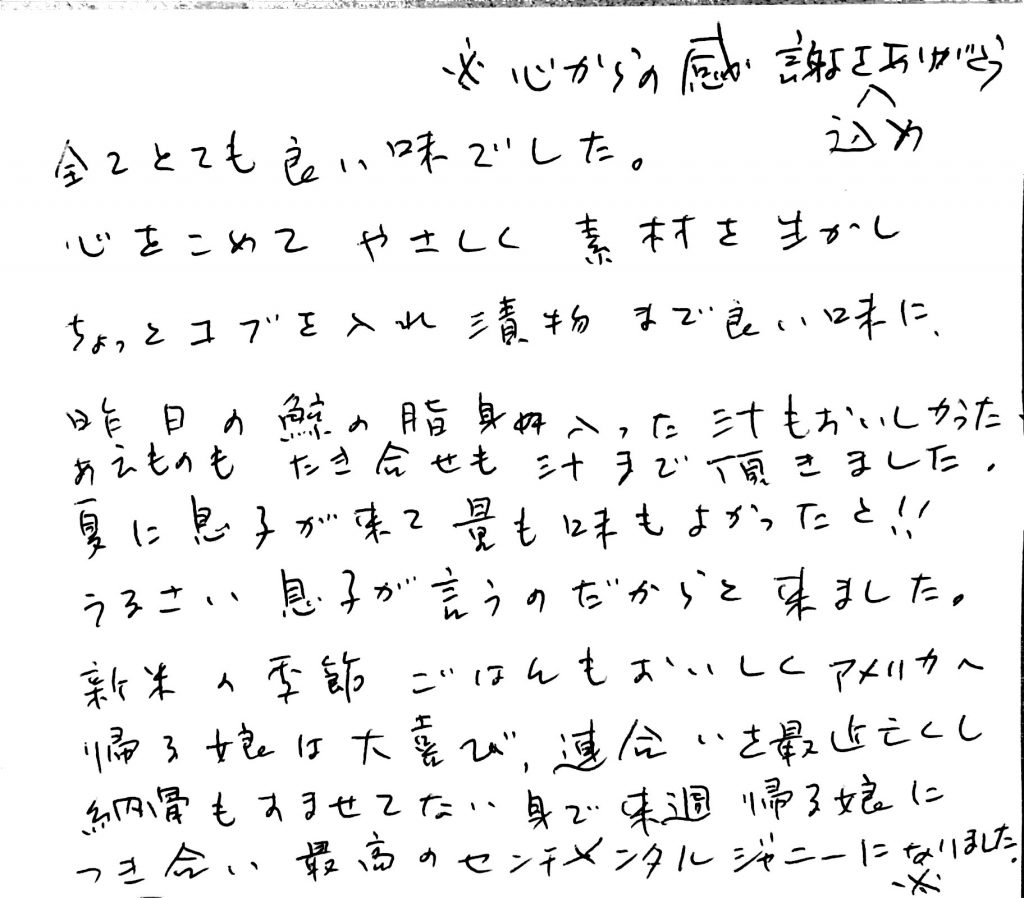 ※心からの感謝を込めありがとう
全てとても良い味でした。
心をこめて やさしく 素材を生かし
ちょっとコブを入れ 漬物まで良い味に、
昨日の鯨の脂身が入った汁もおいしかった
あえものも たき合せも 汁まで頂きました。
夏に息子が来て 量も味もよかったと!!
うるさい息子が言うのだからと来ました。
新米の季節 ごはんもおいしく アメリカへ
帰る娘は大喜び、連合いを最近亡くし
納骨もすませてない身で来週 帰る娘に
つき合い 最高のセンチメンタルジャニーになりました。
※